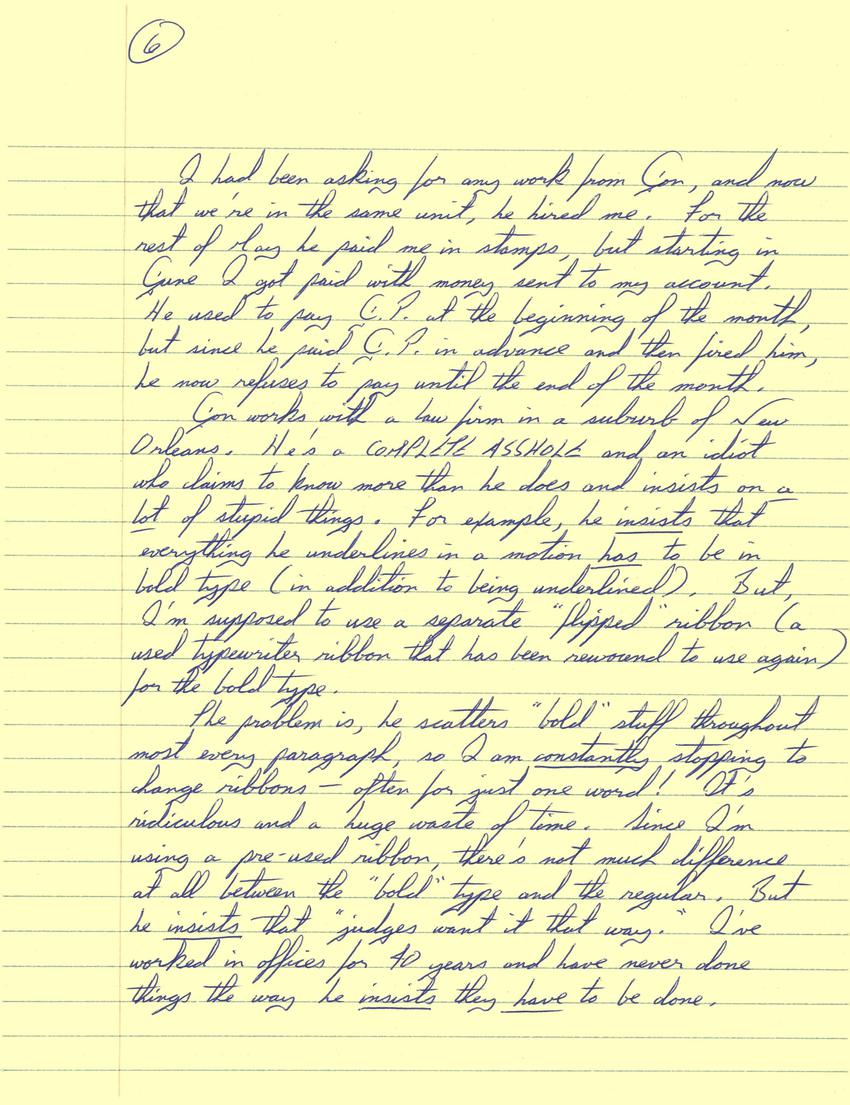 6
I had been asking for any work from Jon, and now
that we're in the same unit, he hired me. For the
rest of May he paid me in stamps, but starting in
June I got paid with money sent to my account.
He used to pay J.P. at the beginning of the month,
but since he paid J.P. in advance and then fired him,
he now refuses to pay until the end of the month.
Jon works with a law firm in a suburb of New
Orleans. He's a COMPLETE ASSHOLE and an idiot
who claims to know more than he does and insists on a
lot of stupid things. For example, he insists that
everything he underlines in a motion has to be in
bold type (in addition to being underlined). But,
I'm supposed to use a separate "flipped" ribbon (a
used typewriter ribbon that has been rewound to use again)
for the bold type.
The problem is, he scatters "bold" stuff throughout
most every paragraph, so I am constantly stopping to
change ribbons – often for just one word! It's
ridiculous and a huge waste of time. Since I'm
using a pre-used ribbon, there's not much difference
at all between the "bold" type and the regular. But
he insists that "judges want it that way." I've
worked in offices for 40 years and have never done
things the way he insists they have to be done.